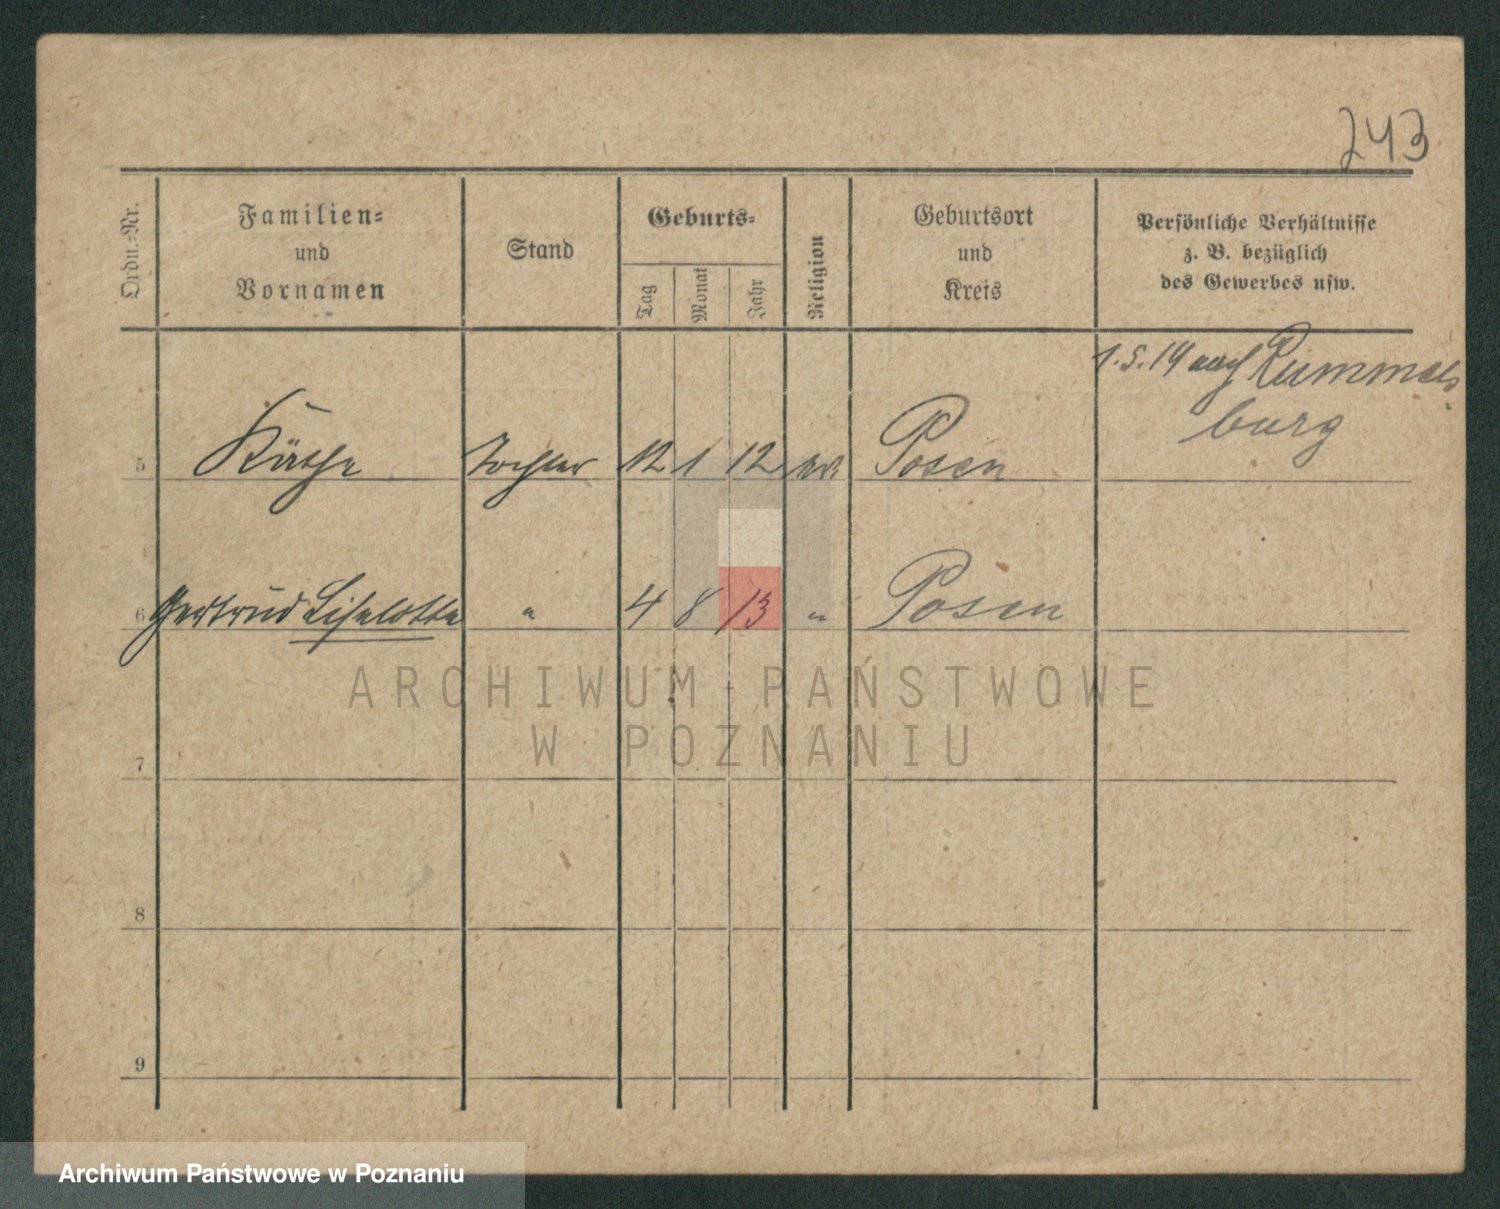 243
Ordn.-Nr.
Familien-
und
Vornamen
Stand
Geburts-
Tag
Monat
Jahr
Religion
Geburtsort
und
Kreis
Persönliche Verhältnisse
z. B. bezüglich
des Gewerbes usw.
1.5.19 nach Rummels-
burg
5 Käthe Tochter 12 1 12 ev. Posen
6 Gertrud Liselotte " 4 8 13 " Posen
7
8
9
ARCHIWUM PAŃSTWOWE
W POZNANIU
Archiwum Państwowe w Poznaniu